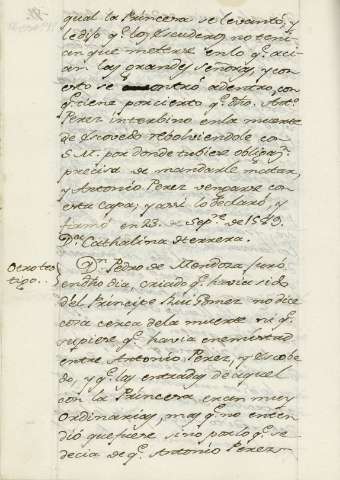 qual la Princesa se levantó, y
le dijo q.e los Escuderos no teni-
an que meterse en lo q.e aci-
an las grandes señoras, y con
esto se entró adentro, con
q.e tiene por cierto q.e dho. Ant.o
Perez interbino en la muerte
de Escovedo rebolviendole con
S.M. por donde tubiere obligaz.n
precisa de mandarle matar,
y Antonio Perez vengarse con
esta capa; y assi lo declaró, y
firmó en 23. de Sep.re de 1549.
D.a Cathalina de Herrera.
Otro tes-
tigo..
D.n Pedro de Mendoza juró
en dho dia, criado q.e havia sido
del Principe Rui Gomez no dice
cosa cerca de la muerte ni q.e
supiese q.e havia enemistad
entre Antonio Perez, y Escobe-
do, y q.e las entradas de aquel
con la Princesa eran muy
ordinarias, mas q.e no enten-
dió que fuese, sino por lo q.e se
decia de q.e Antonio Perez